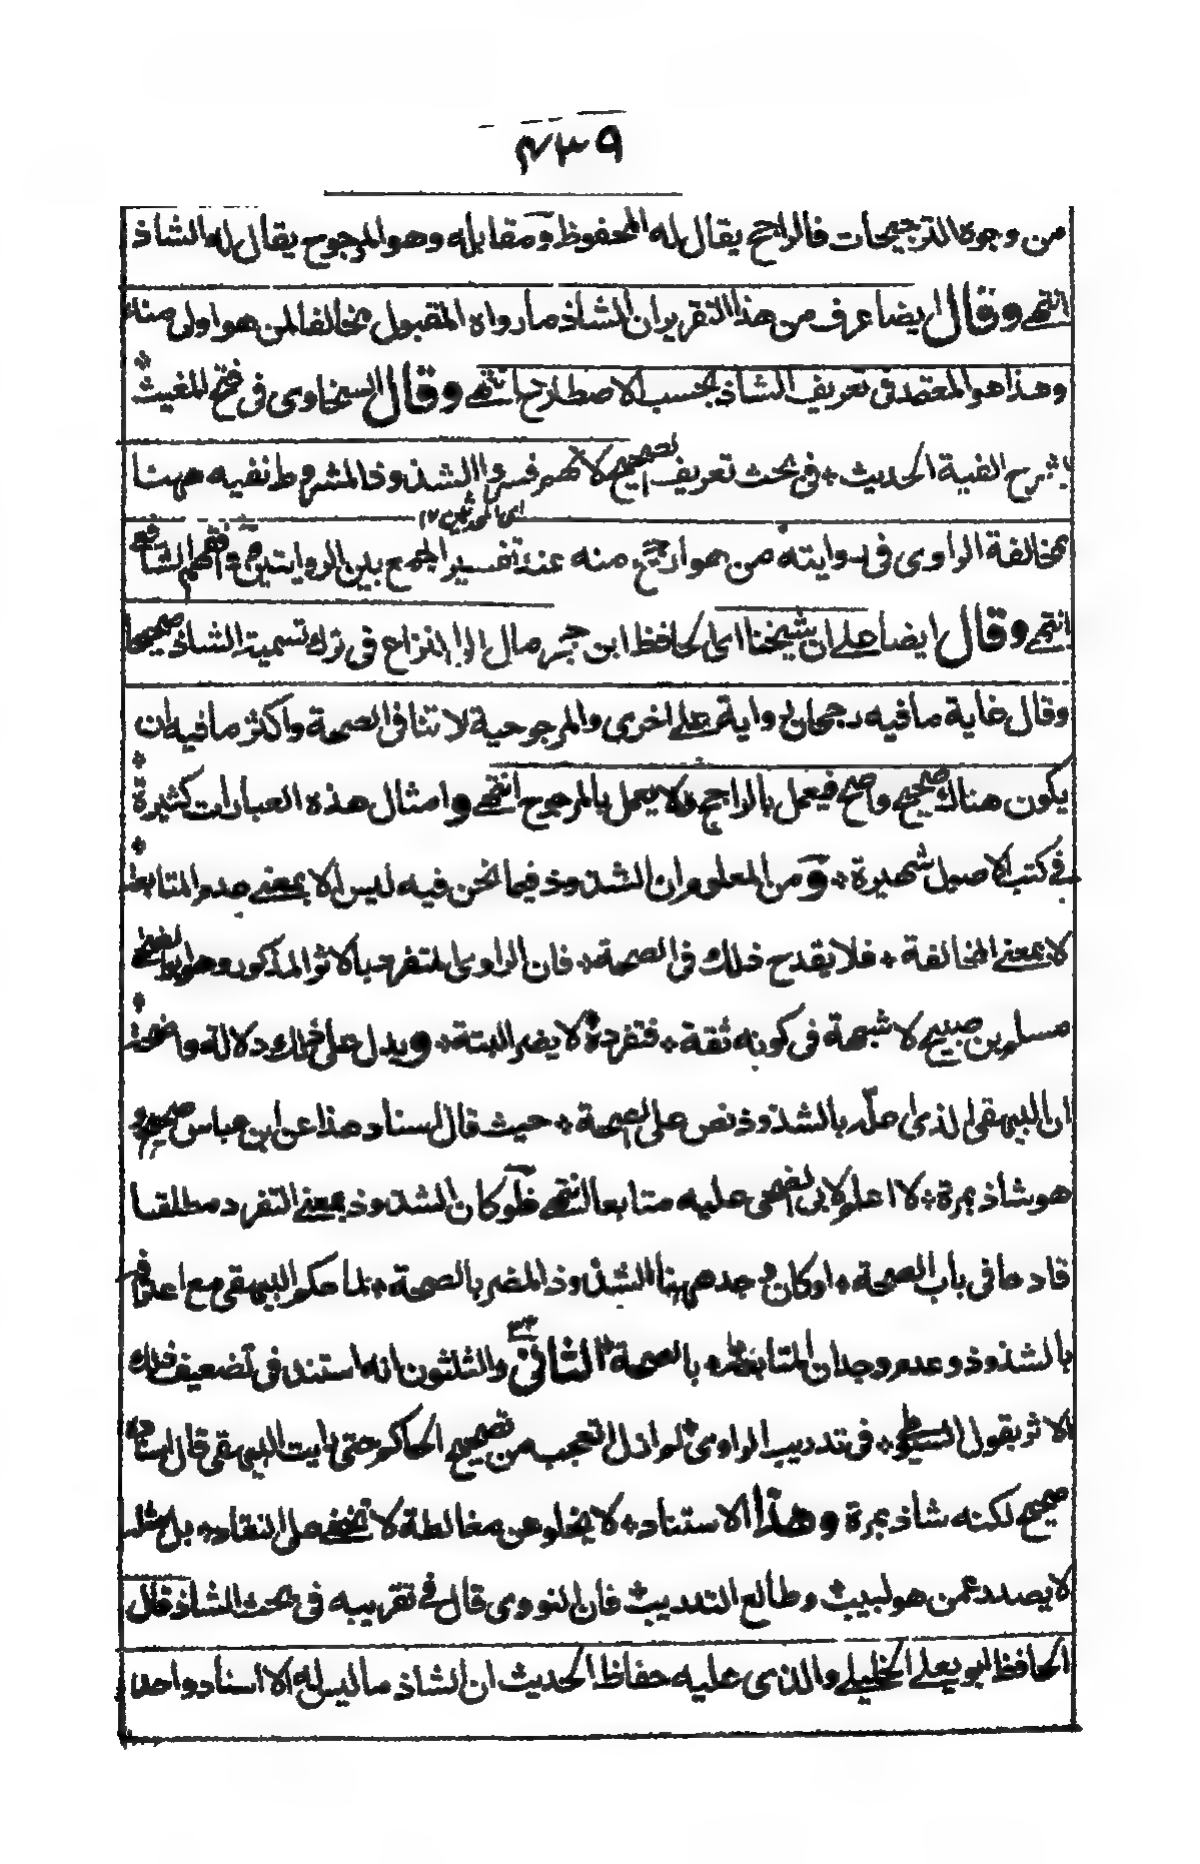 ٤٣٩
من وجوه الترجيحات فالراجح يقال له المحفوظ ومقابله وهو المرجوح يقال له الشاذ
انتهى وقال ايضا عرف من هذا التقرير ان الشاذ ما رواه المقبول مخالفا لمن هو اولى منه
وهذا هو المعتمد فى تعريف الشاذ بحسب الاصطلاح انتهى وقال السخاوى فى فتح المغيث
بشرح الفية الحديث فى بحث تعريف الصحيح لانهم فسروا الشذوذ المشروط نفيه ههنا
اى المحدثين ١٢
بمخالفة الراوى فى روايته من هو ارجح منه عند تفسير الجمع بين الروايتين وافقهم الشافعى
انتهى وقال ايضا على ان شيخنا اى الحافظ ابن حجر مال الى النزاع فى ترك تسمية الشاذ صحيحا
وقال غاية ما فيه رجحان رواية على اخرى والمرجوحية لا تنافى الصحة واكثر ما فيه ان
يكون هناك صحيح واصح فيعمل بالراجح ولا يعمل بالمرجوح انتهى وامثال هذه العبارات كثيرة
فى كتب الاصول شهيرة ومن المعلوم ان الشذوذ فيما نحن فيه ليس الا بمعنى عدم المتابعة
لا بمعنى المخالفة فلا يقدح ذلك فى الصحة فان الراوى المتفرد بالاثر المذكور وهو ابو الضحى
مسلم بن صبيح لا شبهة فى كونه ثقة فتفرده لا يضر البتة ويدل على ذلك دلالة واضحة
ان البيهقى الذى اعله بالشذوذ نص على الصحة حيث قال اسناد هذا عن ابن عباس صحيح و
هو شاذ بمرة لا اعلم لابى الضحى عليه متابعا انتهى فلو كان الشذوذ بمعنى التفرد مطلقا
قادحا فى باب الصحة او كان وجد ههنا الشذوذ المضر بالصحة لما حكم البيهقى مع اعترافه
بالشذوذ وعدم وجدان المتابعة بالصحة الثانى والثلثون انه استند فى تضعيف ذلك
٣٢
الاثر بقول السيوطى فى تدريب الراوى لم ازل اتعجب من تصحيح الحاكم حتى رايت البيهقى قال اسناده
صحيح لكنه شاذ بمرة وهذا الاستناد لا يخلو عن مغالطة لا تخفى على النقاد بل مثله
لا يصدر عمن هو لبيب وطالع التدريب فان النووى قال فى تقريبه فى بحث الشاذ قال
الحافظ ابو يعلى الخليلى والذى عليه حفاظ الحديث ان الشاذ ما ليس له الا اسناد واحد